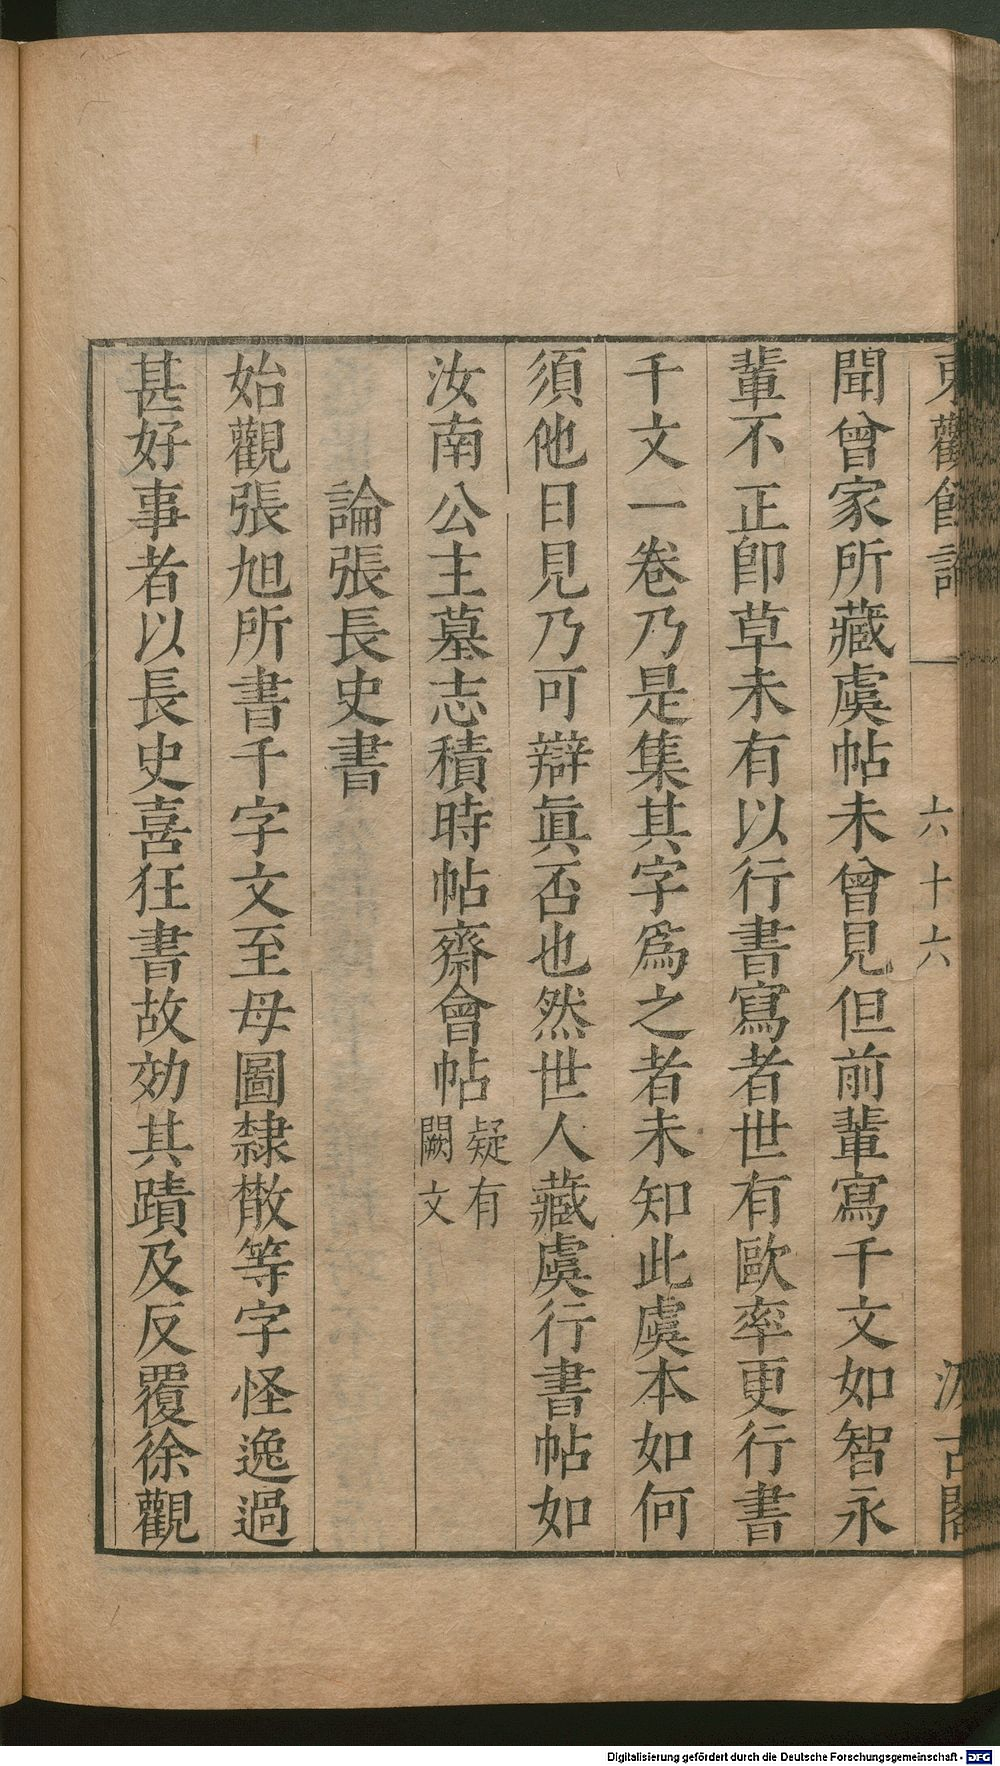 東觀餘論 六十六 汲古閣
聞曾家所藏虞帖未曾見但前輩寫千文如智永
輩不正卽草未有以行書寫者世有歐率更行書
千文一卷乃是集其字爲之者未知此虞本如何
須他日見乃可辯眞否也然世人藏虞行書帖如
汝南公主墓志積時帖齋會帖疑有闕文
論張長史書
始觀張旭所書千字文至母圖隸散等字怪逸過
甚好事者以長史喜狂書故効其蹟及反覆徐觀
Digitalisierung gefördert durch die Deutsche Forschungsgemeinschaft - DFG